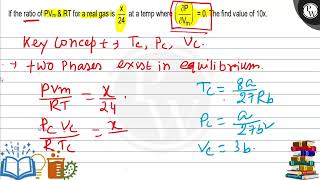 If the ratio of PVm & RT for a real gas is x/24 at a temp where (∂P/∂Vm) = 0. The find value of 10x.
Key concept → Tc, Pc, Vc.
→ two phases exist in equilibrium.
PVm/RT = x/24
Tc = 8a/27Rb
PcVc/RTc = x
Pc = a/27b²
Vc = 3b.